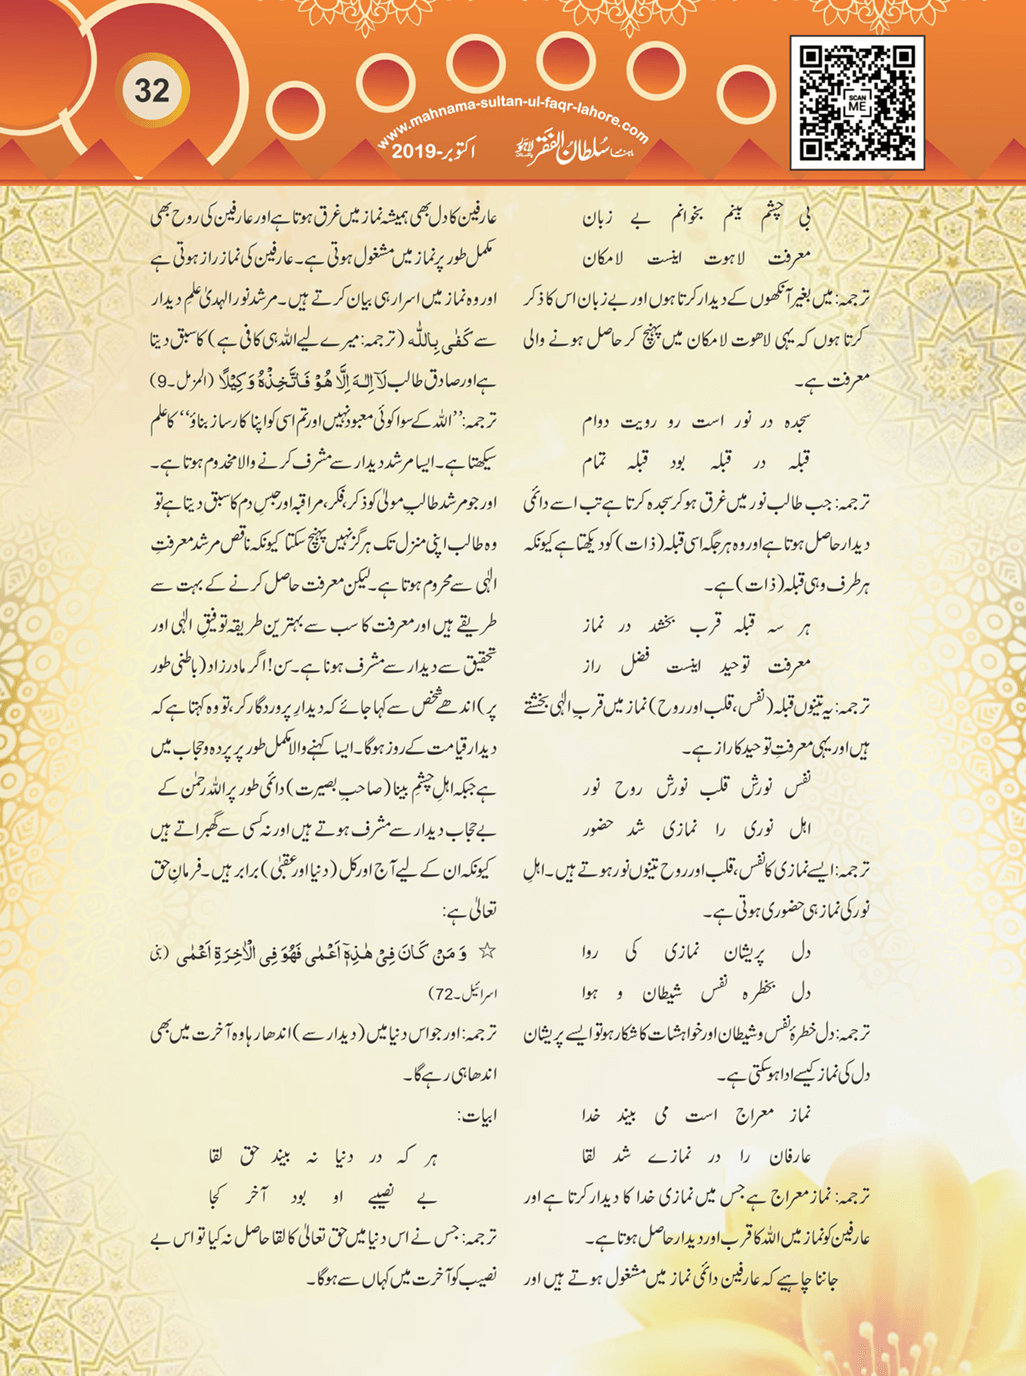 32
www.mahnama-sultan-ul-faqr-lahore.com
ماہنامہ سلطان الفقر لاہور
اکتوبر-2019
SCAN
ME
بی چشم بینم بخوانم بے زبان
معرفت لاہوت اینست لامکان
ترجمہ: میں بغیر آنکھوں کے دیدار کرتا ہوں اور بے زبان اس کا ذکر
کرتا ہوں کہ یہی لاھوت لامکان میں پہنچ کر حاصل ہونے والی
معرفت ہے۔
سجدہ در نور است رو رویت دوام
قبلہ در قبلہ بود قبلہ تمام
ترجمہ: جب طالب نور میں غرق ہو کر سجدہ کرتا ہے تب اسے دائمی
دیدار حاصل ہوتا ہے اور وہ ہر جگہ اسی قبلہ (ذات) کو دیکھتا ہے کیونکہ
ہر طرف وہی قبلہ (ذات) ہے۔
ہر سہ قبلہ قرب بخشد در نماز
معرفت توحید اینست فضل راز
ترجمہ: یہ تینوں قبلہ (نفس، قلب اور روح) نماز میں قربِ الٰہی بخشتے
ہیں اور یہی معرفتِ توحید کا راز ہے۔
نفس نورش قلب نورش روح نور
اہل نوری را نمازی شد حضور
ترجمہ: ایسے نمازی کا نفس، قلب اور روح تینوں نور ہوتے ہیں۔ اہلِ
نور کی نماز ہی حضوری ہوتی ہے۔
دل پریشان نمازی کی روا
دل بخطرہ نفس شیطان و ہوا
ترجمہ: دل خطرۂ نفس و شیطان اور خواہشات کا شکار ہو تو ایسے پریشان
دل کی نماز کیسے ادا ہو سکتی ہے۔
نماز معراج است می بیند خدا
عارفان را در نمازے شد لقا
ترجمہ: نماز معراج ہے جس میں نمازی خدا کا دیدار کرتا ہے اور
عارفین کو نماز میں اللہ کا قرب اور دیدار حاصل ہوتا ہے۔
جاننا چاہیے کہ عارفین دائمی نماز میں مشغول ہوتے ہیں اور
عارفین کا دل بھی ہمیشہ نماز میں غرق ہوتا ہے اور عارفین کی روح بھی
مکمل طور پر نماز میں مشغول ہوتی ہے۔ عارفین کی نماز راز ہوتی ہے
اور وہ نماز میں اسرار ہی بیان کرتے ہیں۔ مرشد نور الہدیٰ علمِ دیدار
سے کَفٰی بِاللّٰہ (ترجمہ: میرے لیے اللہ ہی کافی ہے) کا سبق دیتا
ہے اور صادق طالب لَآ اِلٰہَ اِلَّا ھُوَ فَاتَّخِذْہُ وَکِیْلًا (المزمل۔9)
ترجمہ: ’’اللہ کے سوا کوئی معبود نہیں اور تم اسی کو اپنا کارساز بناؤ‘‘ کا علم
سیکھتا ہے۔ ایسا مرشد دیدار سے مشرف کرنے والا مخدوم ہوتا ہے۔
اور جو مرشد طالبِ مولیٰ کو ذکر، فکر، مراقبہ اور حبسِ دم کا سبق دیتا ہے تو
وہ طالب اپنی منزل تک ہرگز نہیں پہنچ سکتا کیونکہ ناقص مرشد معرفتِ
الٰہی سے محروم ہوتا ہے۔ لیکن معرفت حاصل کرنے کے بہت سے
طریقے ہیں اور معرفت کا سب سے بہترین طریقہ توفیقِ الٰہی اور
تحقیق سے دیدار سے مشرف ہونا ہے۔ سن! اگر مادر زاد (باطنی طور
پر) اندھے شخص سے کہا جائے کہ دیدارِ پروردگار کر، تو وہ کہتا ہے کہ
دیدار قیامت کے روز ہوگا۔ ایسا کہنے والا مکمل طور پر پردہ و حجاب میں
ہے جبکہ اہلِ چشمِ بینا (صاحبِ بصیرت) دائمی طور پر اللہ رحمٰن کے
بے حجاب دیدار سے مشرف ہوتے ہیں اور نہ کسی سے گھبراتے ہیں
کیونکہ ان کے لیے آج اور کل (دنیا اور عقبیٰ) برابر ہیں۔ فرمانِ حق
تعالیٰ ہے:
☆ وَمَنْ کَانَ فِیْ ھٰذِہٖٓ اَعْمٰی فَھُوَ فِی الْاٰخِرَۃِ اَعْمٰی (بنی
اسرائیل۔72)
ترجمہ: اور جو اس دنیا میں (دیدار سے) اندھا رہا وہ آخرت میں بھی
اندھا ہی رہے گا۔
ابیات:
ہر کہ در دنیا نہ بیند حق لقا
بے نصیبے او بود آخر کجا
ترجمہ: جس نے اس دنیا میں حق تعالیٰ کا لقا حاصل نہ کیا تو اس بے
نصیب کو آخرت میں کہاں سے ہوگا۔